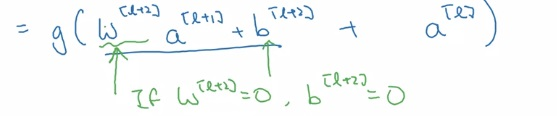 = g(W^[l+2] a^[l+1] + b^[l+2] + a^[l])
If W^[l+2]=0, b^[l+2]=0